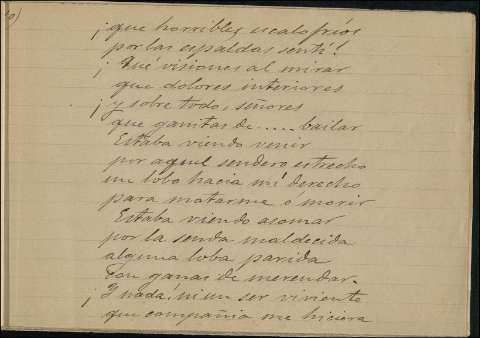 ¡que horribles escalofríos
por las espaldas sentí!
¡Qué visiones al mirar
que dolores interiores
¡y sobre todo, señores
que ganitas de..... bailar
Estaba viendo venir
por aquel sendero estrecho
un lobo hacia mí derecho
para matarme ó morir
Estaba viendo asomar
por la senda maldecida
alguna loba parida
con ganas de merendar.
¡Y nada, ni un ser viviente
que compañia me hiciera